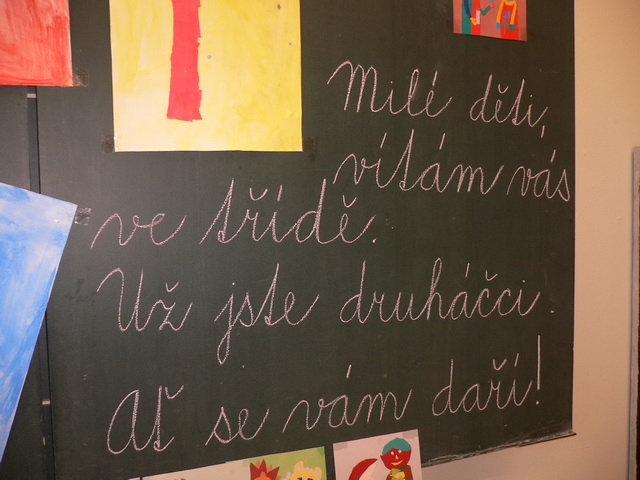 Milé děti,
vítám vás
ve třídě.
Už jste druháčci.
Ať se vám daří!